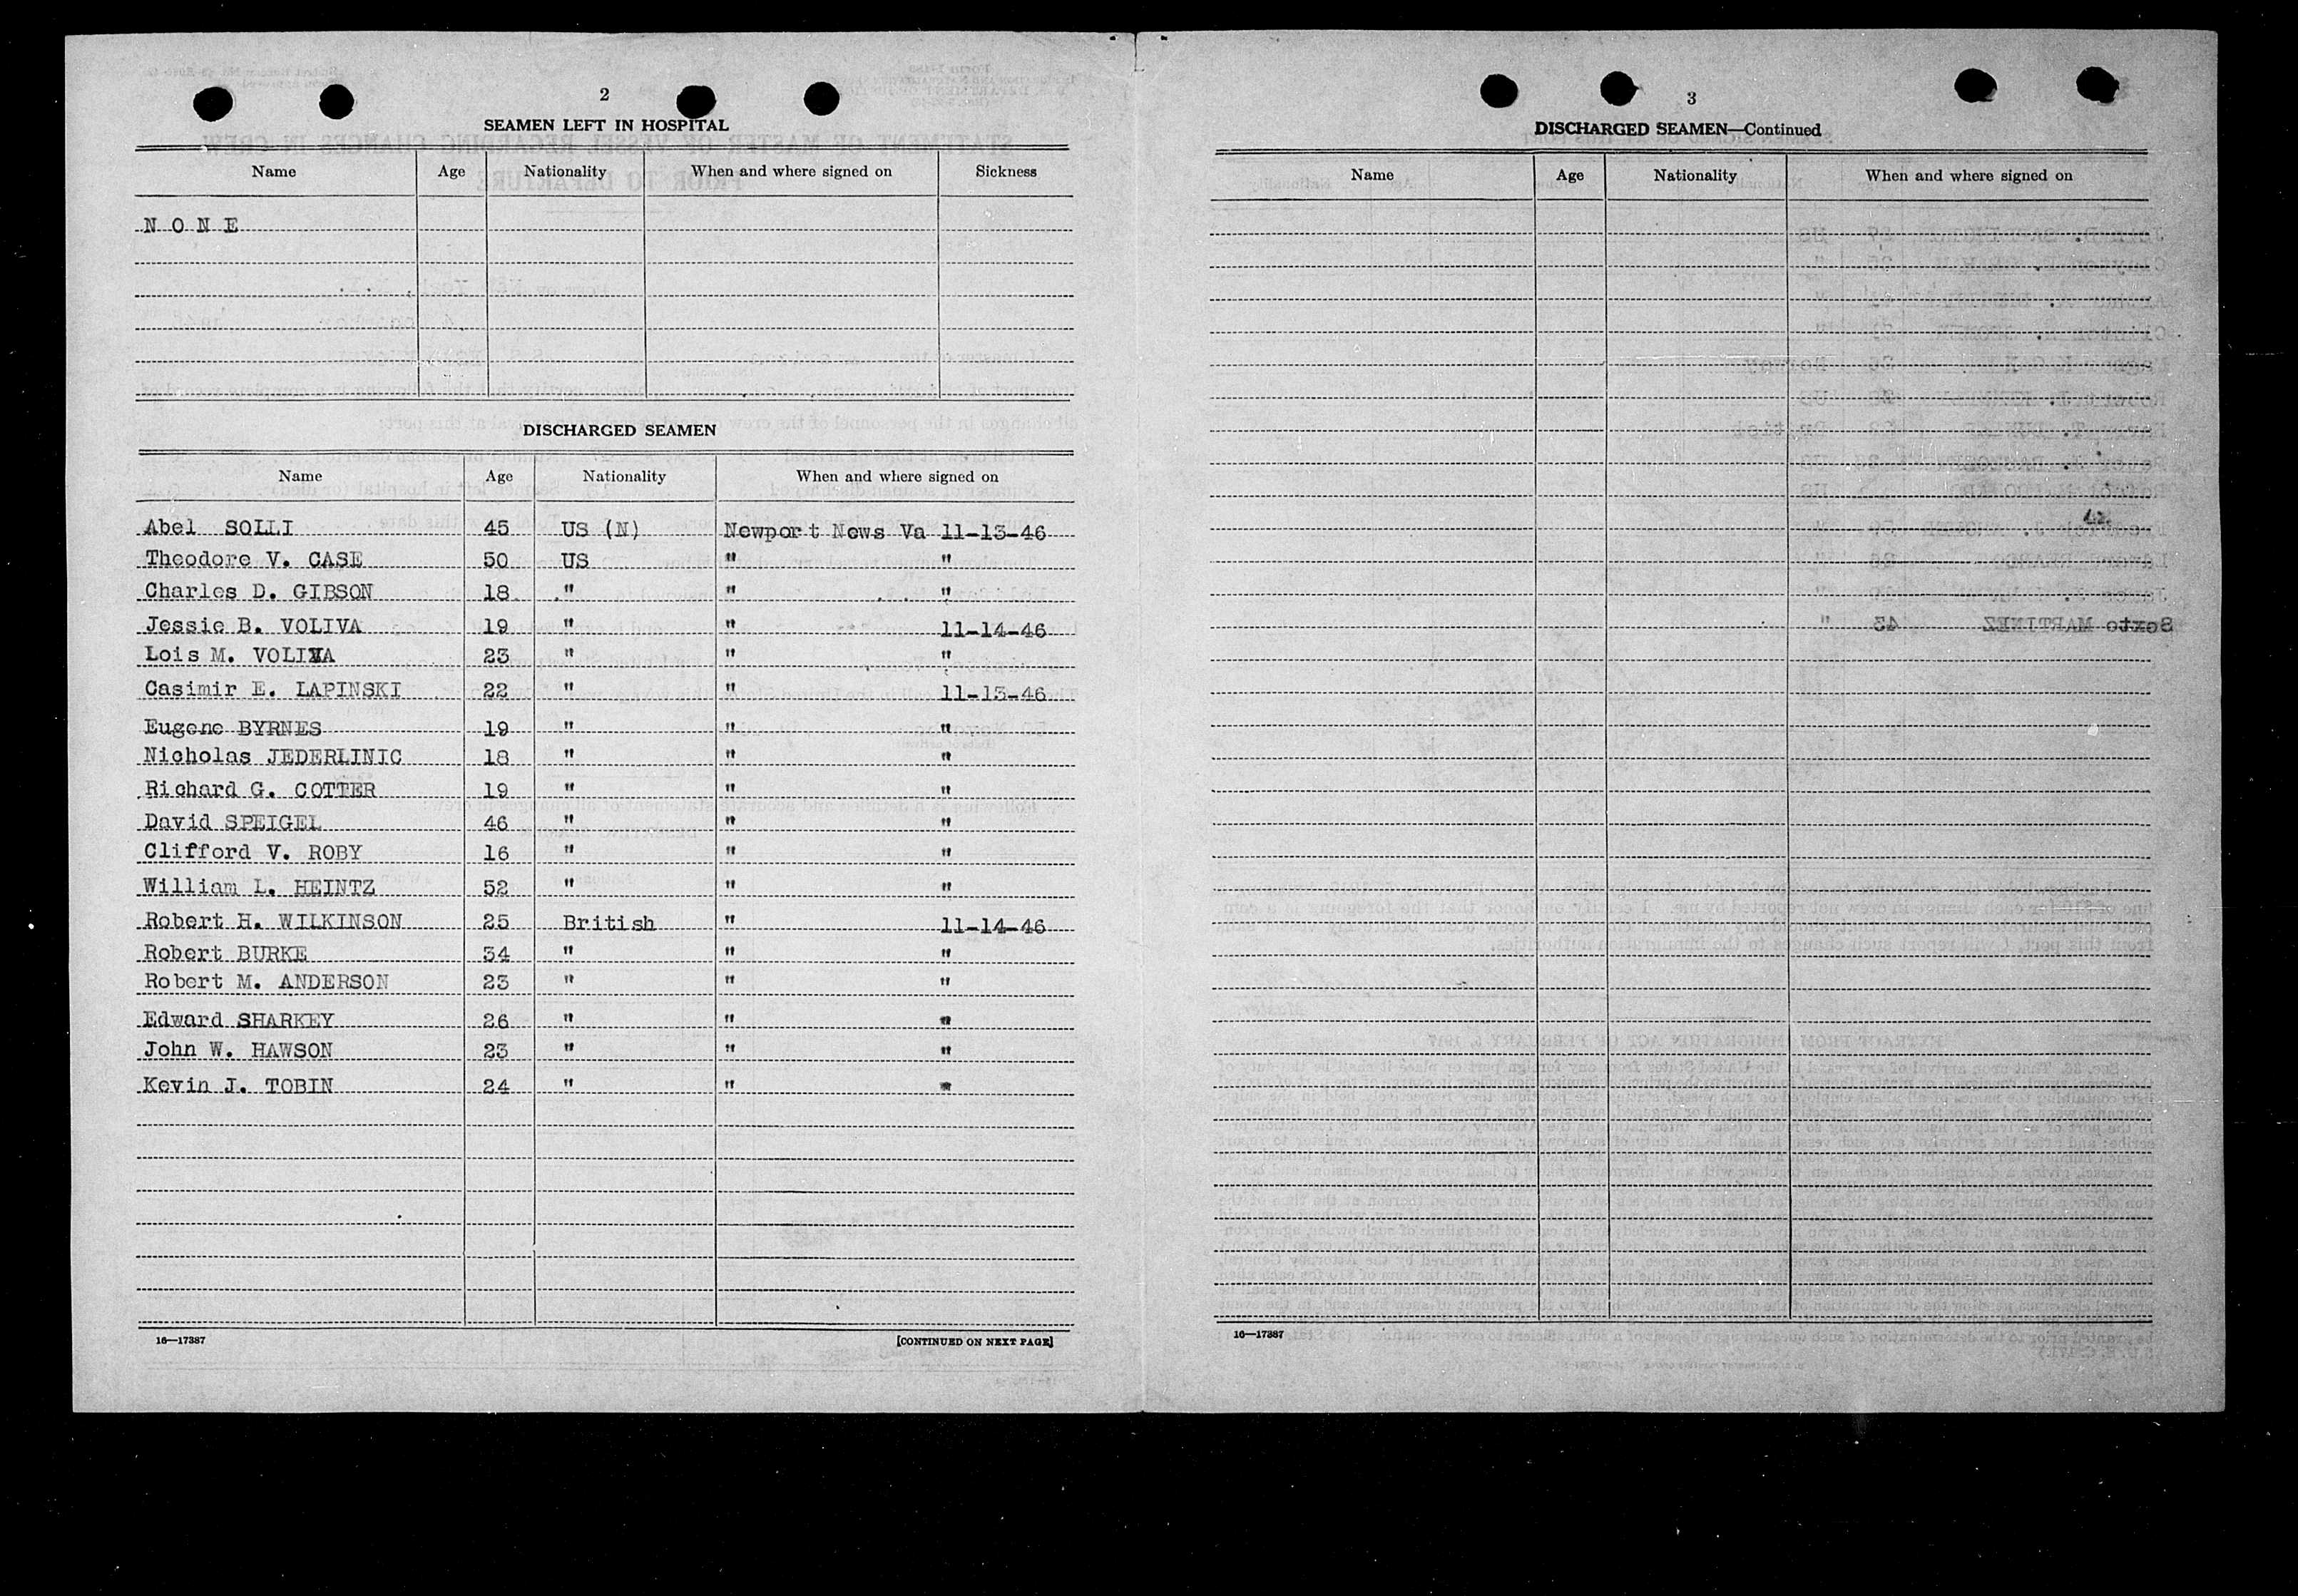 2
SEAMEN LEFT IN HOSPITAL
Name Age Nationality When and where signed on Sickness
N O N E
DISCHARGED SEAMEN
Name Age Nationality When and where signed on
Abel SOLLI 45 US (N) Newport News Va 11-13-46
Theodore V. CASE 50 US " "
Charles D. GIBSON 18 " " "
Jessie B. VOLIVA 19 " " 11-14-46
Lois M. VOLIVA 23 " " "
Casimir E. LAPINSKI 22 " " 11-13-46
Eugene BYRNES 19 " " "
Nicholas JEDERLINIC 18 " " "
Richard G. COTTER 19 " " "
David SPEIGEL 46 " " "
Clifford V. ROBY 16 " " "
William L. HEINTZ 52 " " "
Robert H. WILKINSON 25 British " 11-14-46
Robert BURKE 34 " " "
Robert M. ANDERSON 23 " " "
Edward SHARKEY 26 " " "
John W. HAWSON 23 " " "
Kevin J. TOBIN 24 " " "
16—17387 [CONTINUED ON NEXT PAGE]
3
DISCHARGED SEAMEN—Continued
Name Age Nationality When and where signed on
16—17387